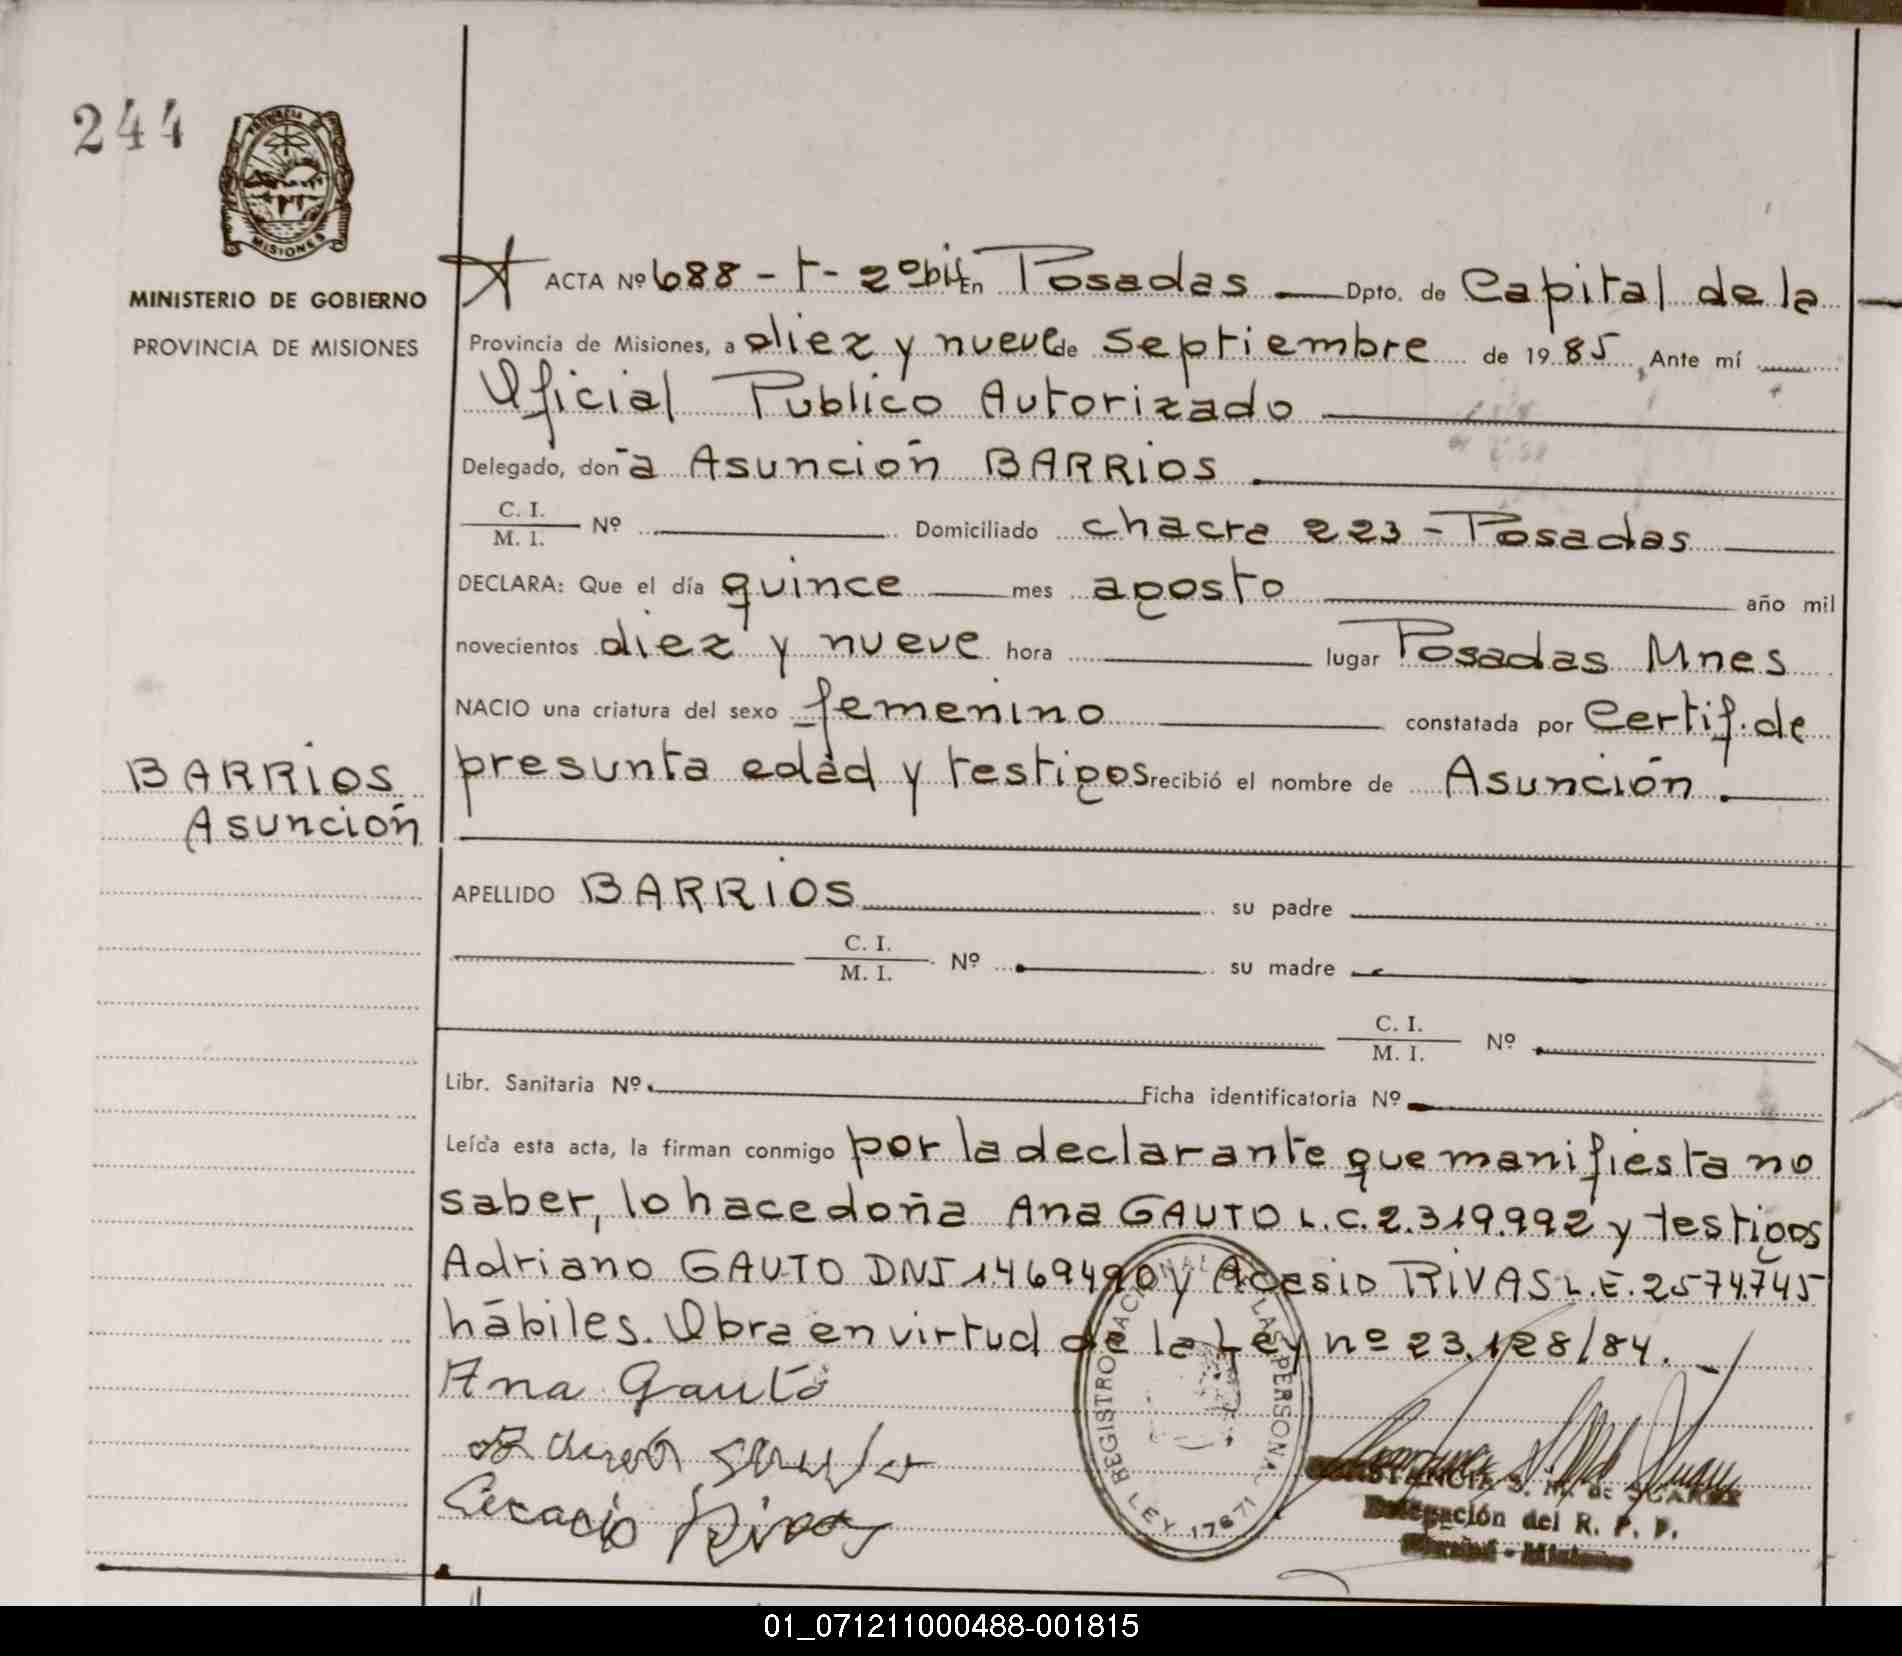 244
PROVINCIA D
MISIONES
MINISTERIO DE GOBIERNO
PROVINCIA DE MISIONES
ACTA Nº 688 - t - 2º bis En Posadas Dpto. de Capital de la
Provincia de Misiones, a diez y nueve de septiembre de 1985, Ante mí
Oficial Publico Autorizado
Delegado, donã Asunción BARRIOS
C. I.
M. I. Nº Domiciliado chacra 223 - Posadas
DECLARA: Que el día quince mes agosto año mil
novecientos diez y nueve hora lugar Posadas Mnes
NACIO una criatura del sexo femenino constatada por Certif. de
presunta edad y testigos recibió el nombre de Asunción
BARRIOS
Asunción
APELLIDO BARRIOS su padre
C. I.
M. I. Nº su madre
C. I.
M. I. Nº
Libr. Sanitaria Nº Ficha identificatoria Nº
Leída esta acta, la firman conmigo por la declarante que manifiesta no
saber, lo hace doña Ana GAUTO L.C. 2.319.992 y testigos
Adriano GAUTO DNI 1469490 y RIVAS L.E. 2574.745
hábiles. Obra en virtud de la Ley nº 23.128/84.
Ana Gauto
REGISTRO NACIONAL LAS PERSONA
LEY 17671
Delegación del R. P. P.
01_071211000488-001815